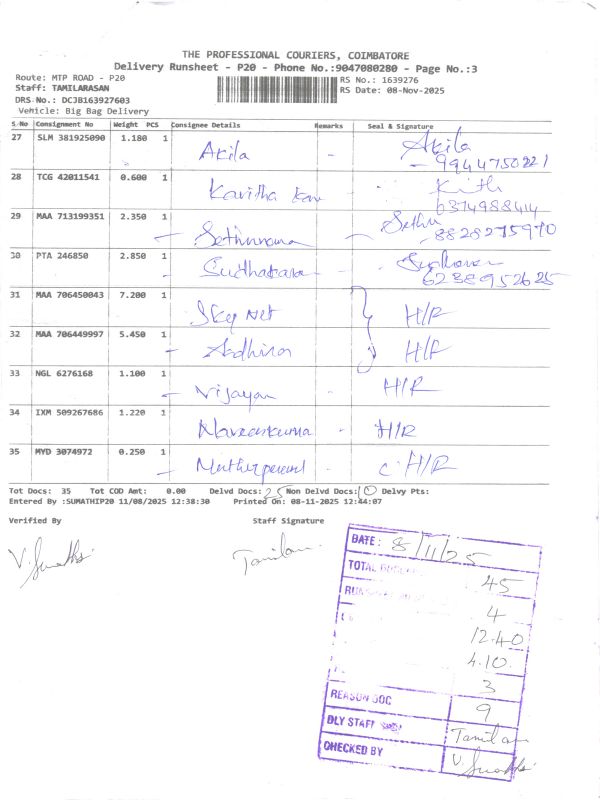 THE PROFESSIONAL COURIERS, COIMBATORE
Delivery Runsheet - P20 - Phone No.:9047080280 - Page No.:3
Route: MTP ROAD - P20
Staff: TAMILARASAN
DRS No.: DCJB163927603
Vehicle: Big Bag Delivery
RS No.: 1639276
RS Date: 08-Nov-2025
S.No Consignment No Weight PCS Consignee Details Remarks Seal & Signature
27 SLM 381925090 1.180 1 Akila - Akila
9944750221
28 TCG 42011541 0.600 1 Kavitha
6374988414
29 MAA 713199351 2.350 1 Sethu
8828275970
30 PTA 246850 2.850 1
6238952625
31 MAA 706450043 7.200 1 Sky Net H/R
32 MAA 706449997 5.450 1 H/R
33 NGL 6276168 1.100 1 Vijayan - H/R
34 IXM 509267686 1.220 1 - H/R
35 MYD 3074972 0.250 1 H/R
Tot Docs: 35 Tot COD Amt: 0.00 Delvd Docs: 25 Non Delvd Docs: 10 Delvy Pts:
Entered By :SUMATHIP20 11/08/2025 12:38:30 Printed On: 08-11-2025 12:44:07
Verified By Staff Signature
V. Sumathi Tamilan
DATE: 8/11/25
TOTAL 45
4
12.40
4.10
3
REASON DOC 9
DLY STAFF Tamilan
CHECKED BY V. Sumathi